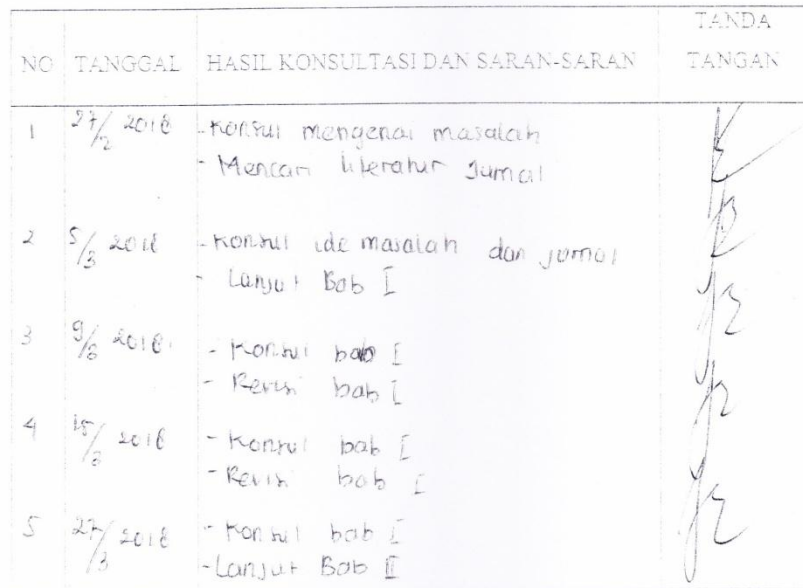 NO TANGGAL HASIL KONSULTASI DAN SARAN-SARAN TANDA TANGAN
1 27/2 2018 - Konsul mengenai masalah
- Mencari literatur Jurnal
2 5/3 2018 - Konsul ide masalah dan jurnal
- Lanjut Bab I
3 9/3 2018 - Konsul bab I
- Revisi bab I
4 15/3 2018 - Konsul bab I
- Revisi bab I
5 27/3 2018 - Konsul bab I
- Lanjut Bab II